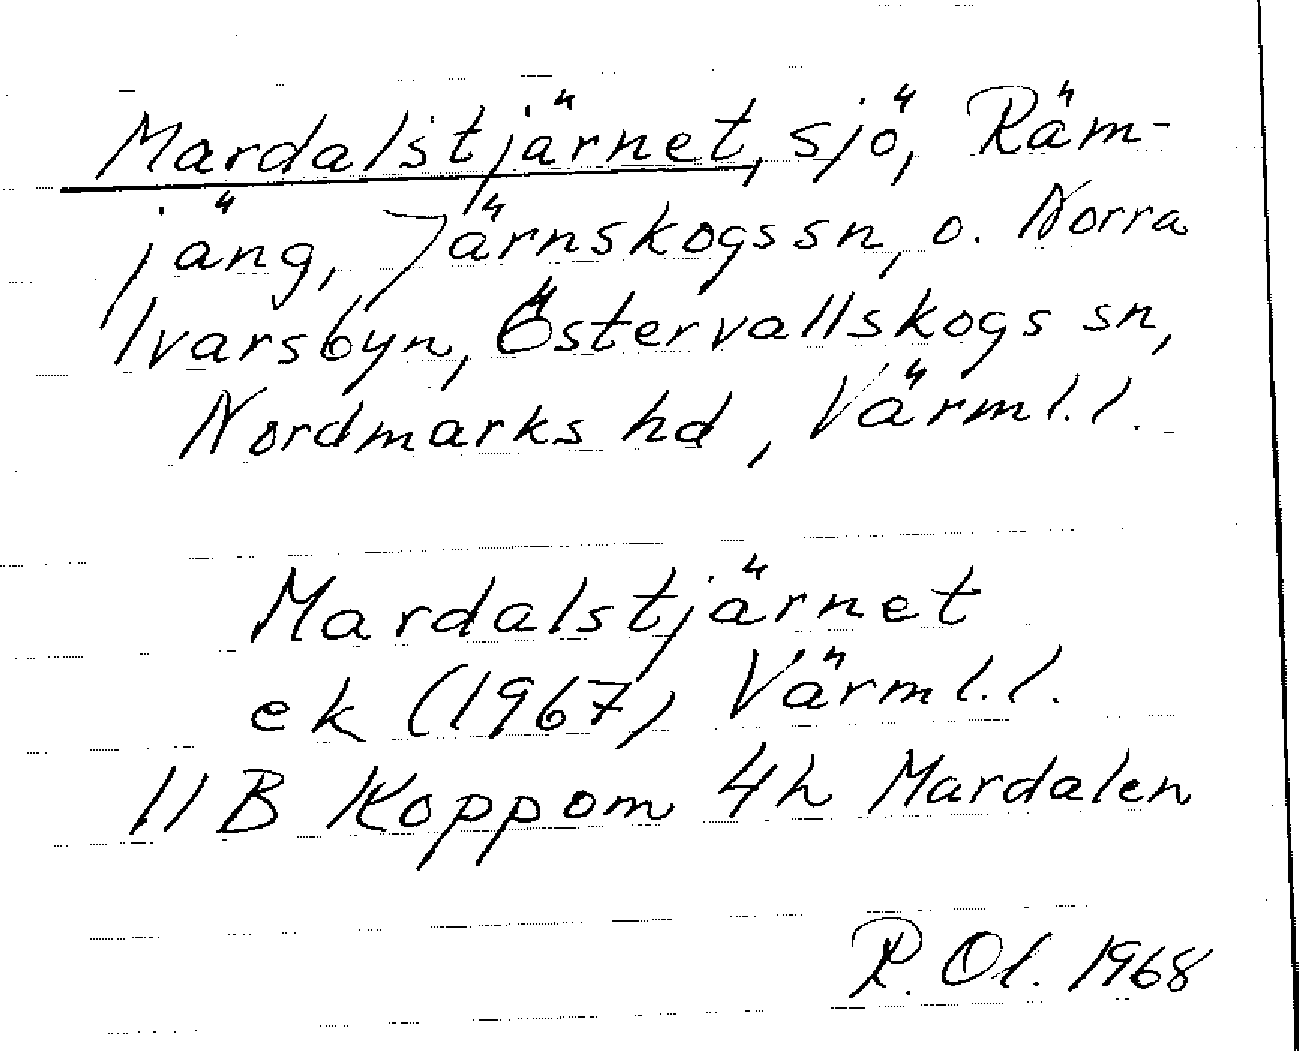 Mardalstjärnet, sjö, Räm-
jäng, Järnskogs sn, o. Norra
Ivarsbyn, Östervallskogs sn,
Nordmarks hd, Värml. l.
Mardalstjärnet
ek (1967) Värml. l.
11 B Koppom 4h Mardalen
R. Ol. 1968